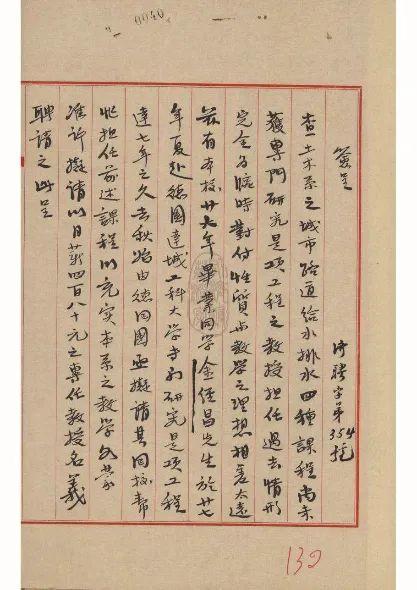 0040
簽呈
濟聘字第354號
查土木系之城市路道給水排水四種課程尚未
獲專門研究是項工程之教授担任過去情形
完全為臨時對付性質與教學之理想相差太遠
茲有本校廿六年畢業同學金經昌先生於廿七
年夏赴德國達城工科大學專門研究是項工程
達七年之久去秋始由德回國亟擬請其回校帮
忙担任前述課程以充实本系之教學如蒙
准許擬請以月薪四百八十元之專任教授名義
聘請之此呈
130